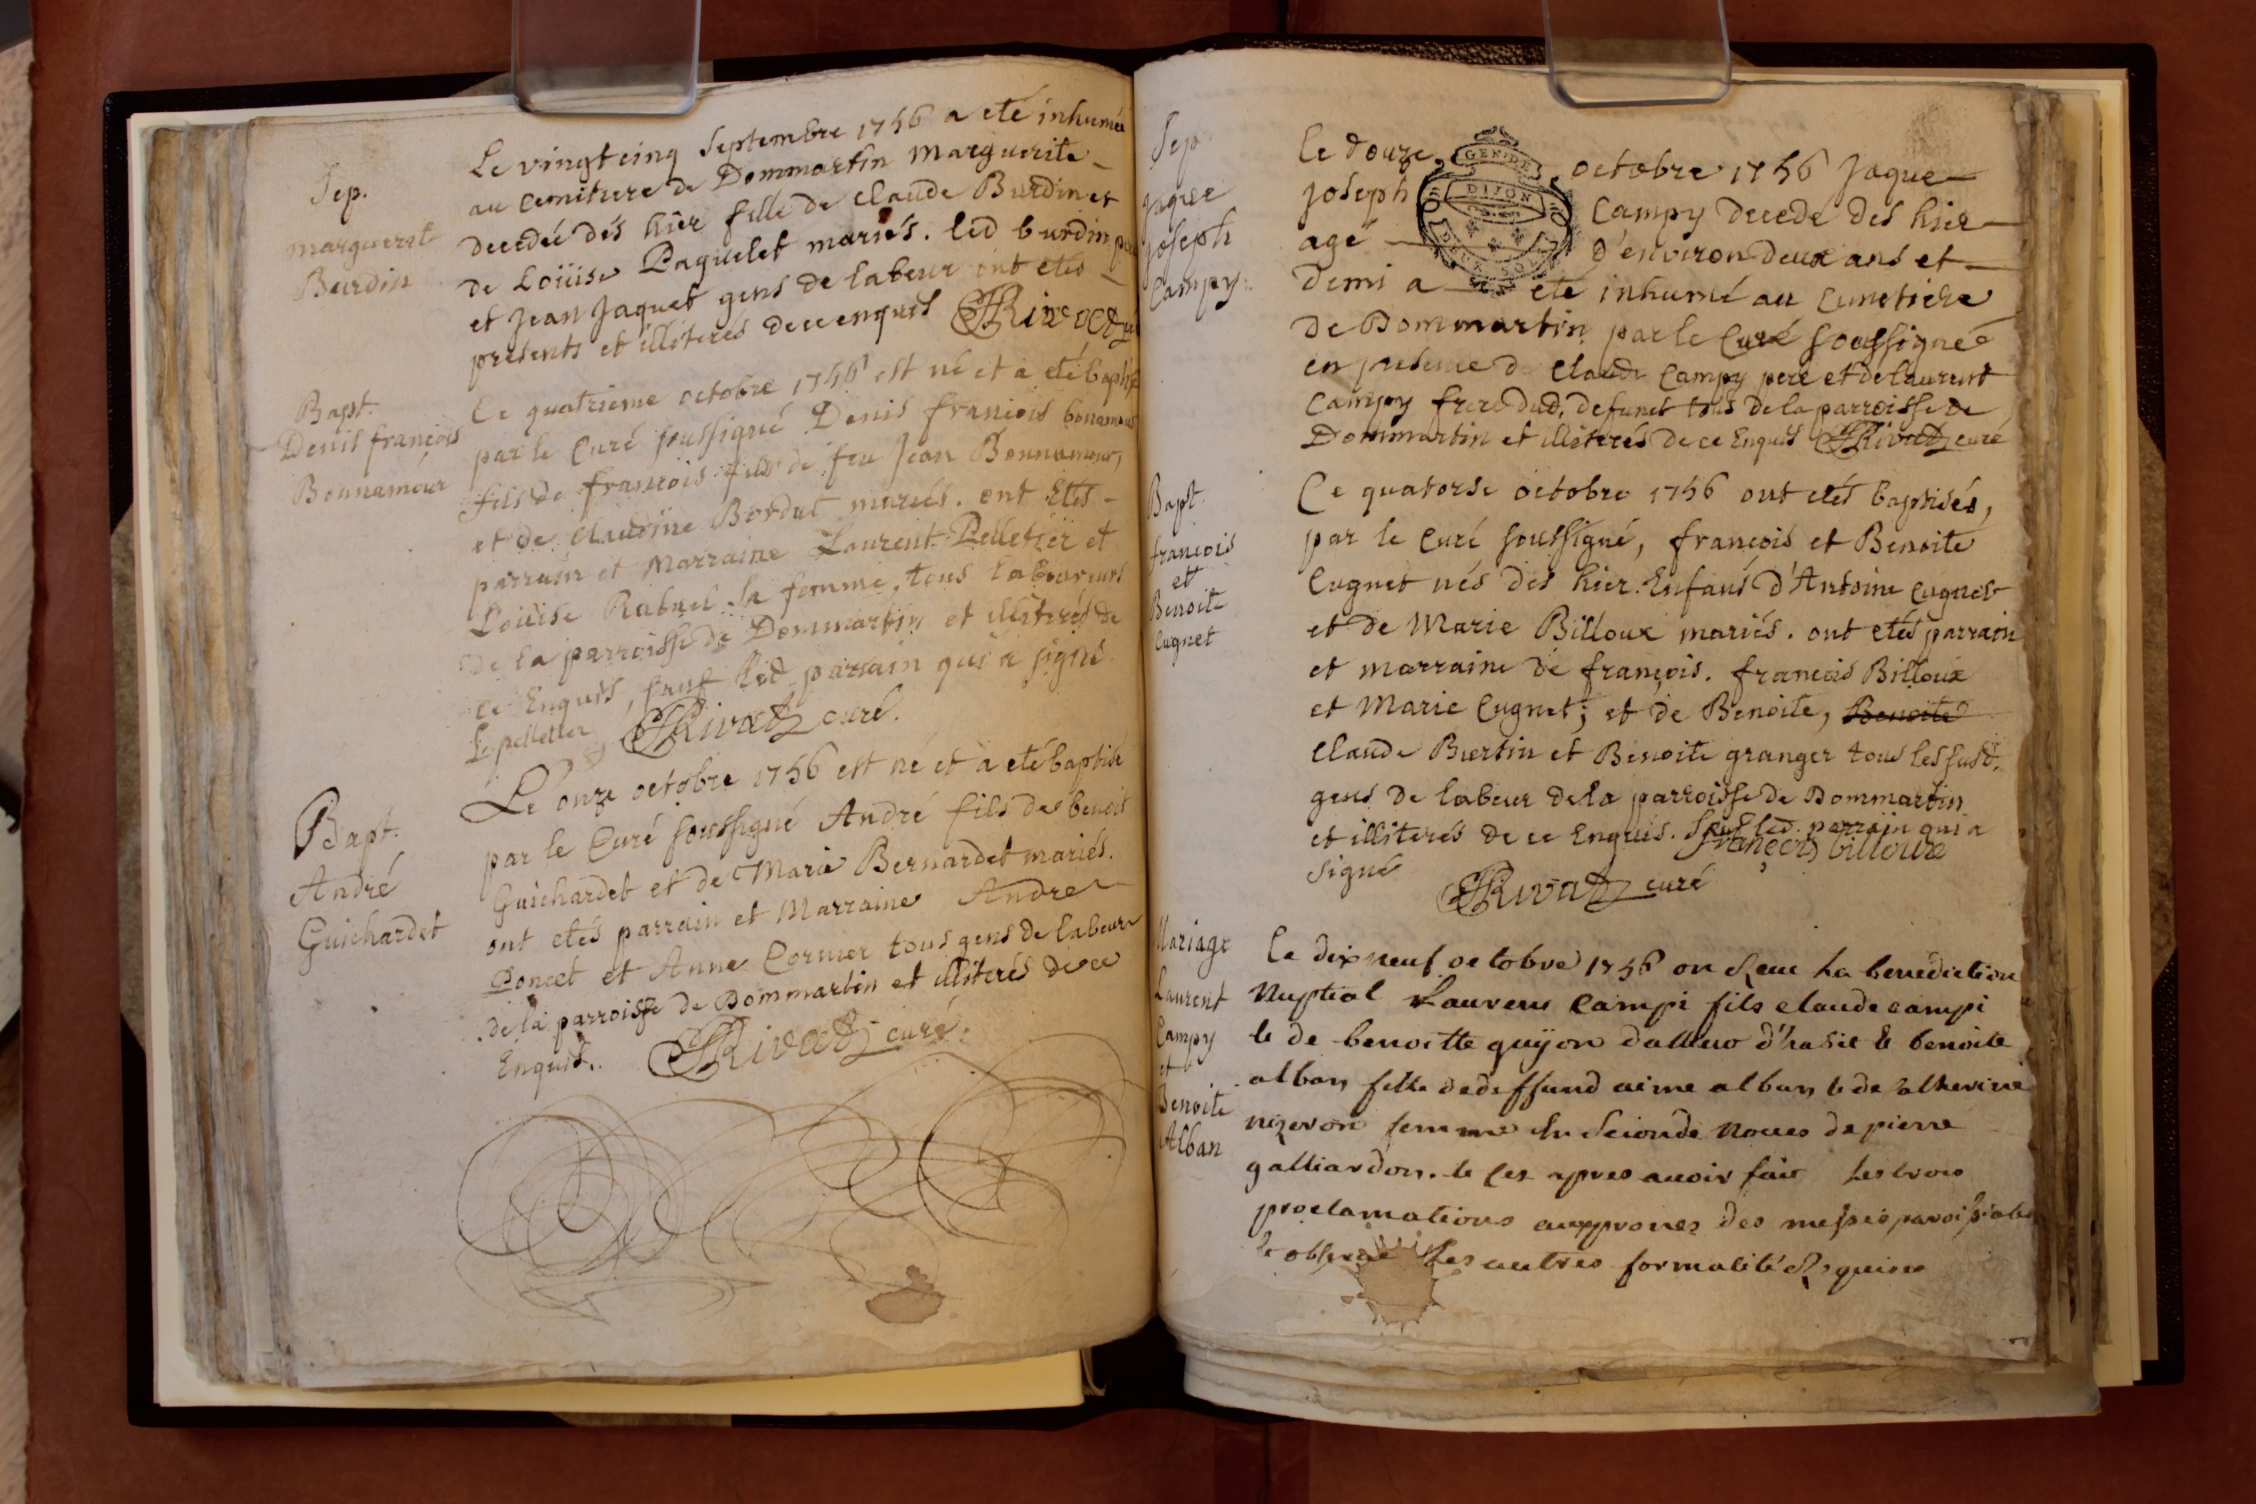 Sep.
marguerit
Burdin
Le vingt cinq Septembre 1756 a eté inhumée
au cemitiere de Dommartin Marguerite
decedée dés hier fille de Claude Burdin et
de Loüise Paquelet mariés. led burdin
et Jean Jaquet gens de labeur ont etés
presents et illiterés de ce enquis JRivat
Bapt.
Denis françois
Bonnamour
Ce quatrieme octobre 1756 est né et a eté baptisé
par le Curé soussigné Denis françois bonamour
fils de françois fils de feu Jean Bonnamour,
et de Claudine Bordat mariés. ont etés
parrain et Marraine Laurent Pelletier et
Loüise sa femme, tous laboureurs
de la parroisse de Dommartin et illiterés de
ce Enquis, sauf led parrain qui a signé.
Lepelletier JRivat curé.
Bapt.
André
Guichardet
Le onze octobre 1756 est né et a eté baptisé
par le Curé soussigné André fils de benoit
Guichardet et de Marie Bernardet mariés.
ont etés parrain et Marraine André
Poncet et Anne Cornier tous gens de labeur
de la parroisse de Dommartin et illiterés de ce
Enquis. JRivat curé.
Sep.
Jaque
Joseph
Campy.
GEN DE
DIJON
DEUX SOLS
le douze octobre 1756 Jaque
Joseph Campy decede des hier
agé d'environ deux ans et
demi a eté inhumé au cimetiere
de Dommartin par le Curé soussigné
en presence de Claude Campy pere et de laurent
Campy frere dud. defunct tous de la parroisse de
Dommartin et illiterés de ce Enquis JRivat curé
Bapt.
françois
et
Benoite
Cugnet
Ce quatorse octobre 1756 ont etés baptisés,
par le Curé soussigné, françois et Benoite
Cugnet nés dés hier. Enfans d'Antoine Cugnet
et de Marie Billoux mariés. ont etés parrain
et marraine de françois. françois Billoux
et Marie Cugnet; et de Benoite, Benoite
Claude Buertin et Benoite granger tous les susd.
gens de labeur de la parroisse de Dommartin
et illiterés de ce Enquis. Sauf led. parrain qui a
signé françois billoux
JRivat curé
Mariage
Laurent
Campy
et
Benoite
Alban
Le dix neuf octobre 1756 on Reçu La benediction
Nuptial Laurens Campi fils claude campi
le de benoitte guÿon le benoite
alban fille de deffund aime alban le de
femme En Seconde Noces de pierre
galliardon. le Ces apres avoir fait Les trois
proclamations aux prones des messes paroissiales
Les autres formalité Requises